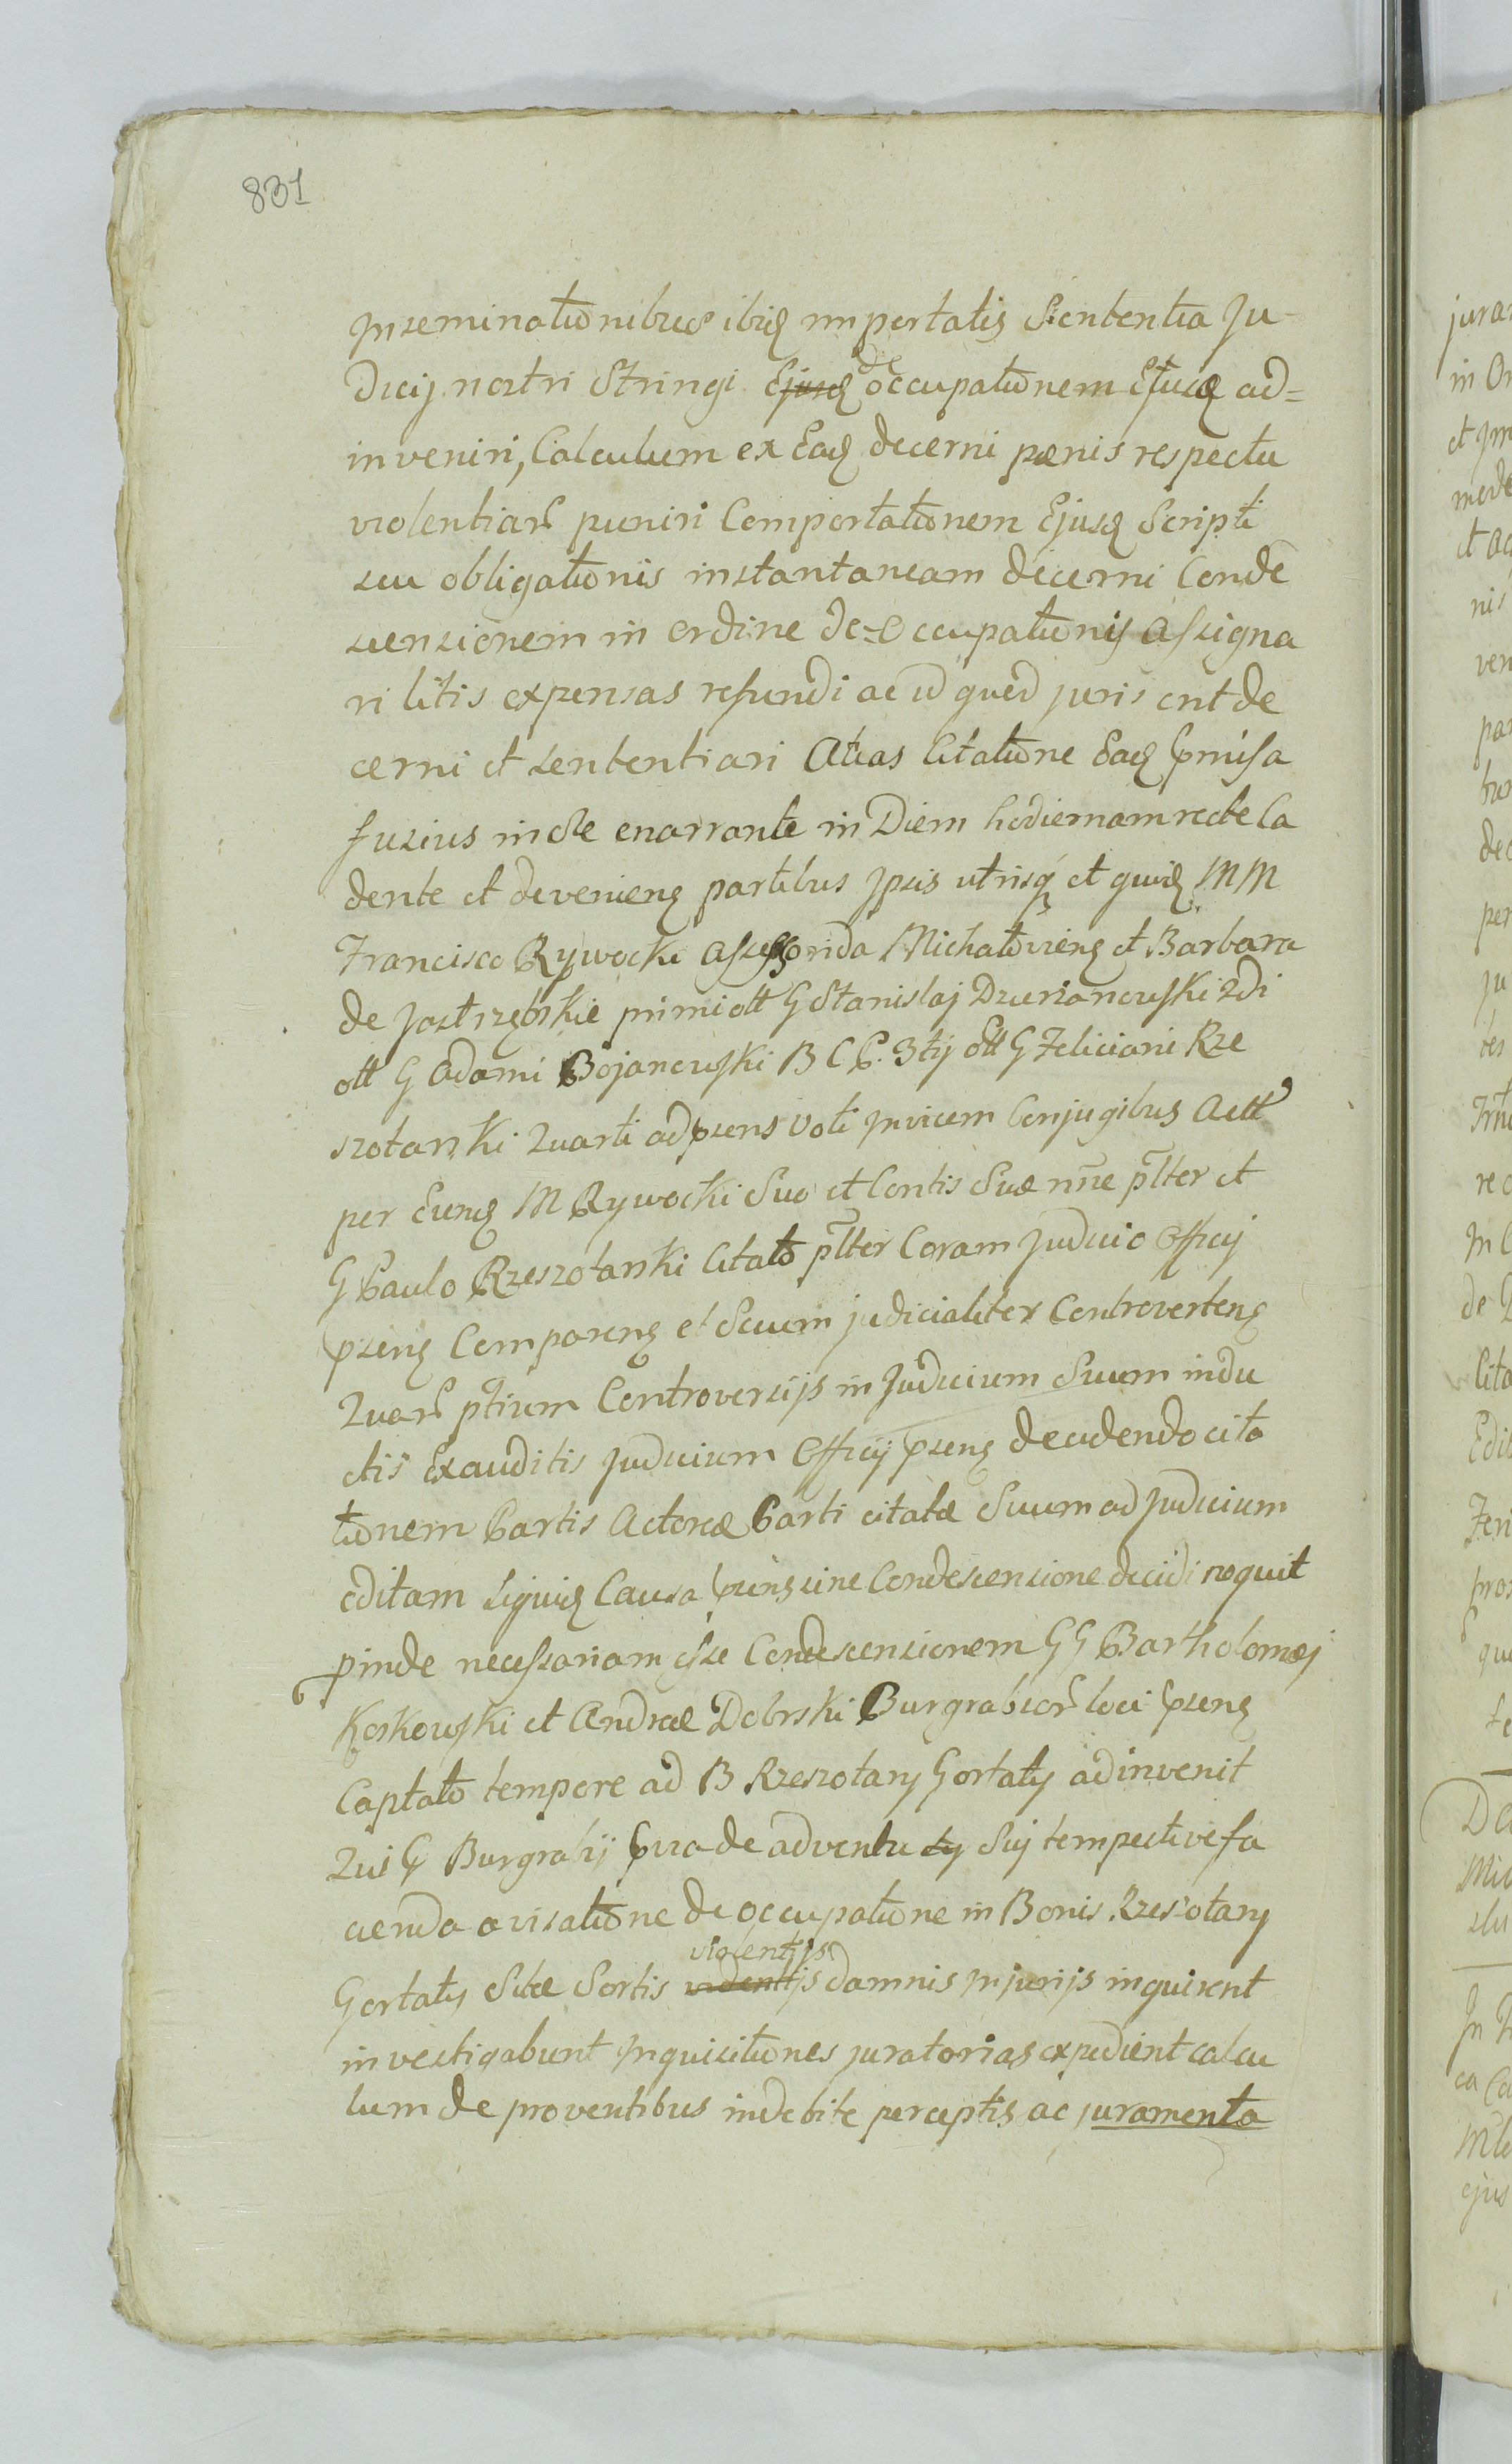 831
Inseminationibus ibid importatis Sententia Ju-
dicij nostri Stringi Ejusd de occupationem Ejusd ad=
inveniri, Calculum ex Ead decerni pænis respectu
violentiar puniri Comportationem Ejusd Scripti
seu obligationis instantaneam decerni Conde
scensionem in ordine de-Occupationis assigna
ri litis expensas refundi ac id quod juris ent de
cerni et sententiari Atias Citatione Ead pmissa
fusius in se enarrante in Diem hodiernam recte Ca
dente et deveniens partibus Ipsis utrisq et quid MM
Francisco Rywocki Michałowieng et Barbara
de Jastrzębskie primi olt G Stanislaj Dzierzanowski 2di
olt G Adami Bojanowski B C P. 3tij olt G Feliciani Rze
szotarski Quarti ad psens Voti Invicem Conjugibus Actt
per Eund M Rywocki Suo et Contis Suæ nne plter et
G Paulo Rzeszotarski Citato plter Coram Judicio Officij
psens Comparens et Suum judicialiter Controvertens
Quar ptium Controversijs in Judicium Suum indu
ctis Exauditis Judicium Officij psens decidendo cita
tionem Partis Actoreæ Parti citatæ Suum ad Judicium
editam Siquid Causa psens sine Condescensione decidi nequit
pinde necessariam esse Condescensionem GG Bartholomæj
Koskowski et Andreæ Dobrski Burgrabior loci psens
Captato tempore ad B Rzeszotary Gortaty adinvenit
Qui G Burgrabij pvia de adventu ty Suj tempestive fa
cienda avisatione de occupatione in Bonis Rzeszotary
violentijs
Gortaty Sitæ Sortis videntijs damnis Injurijs inquirent
investigabunt Inquisitiones juratorias expedient calcu
lum de proventibus indebite perceptis ac juramenta